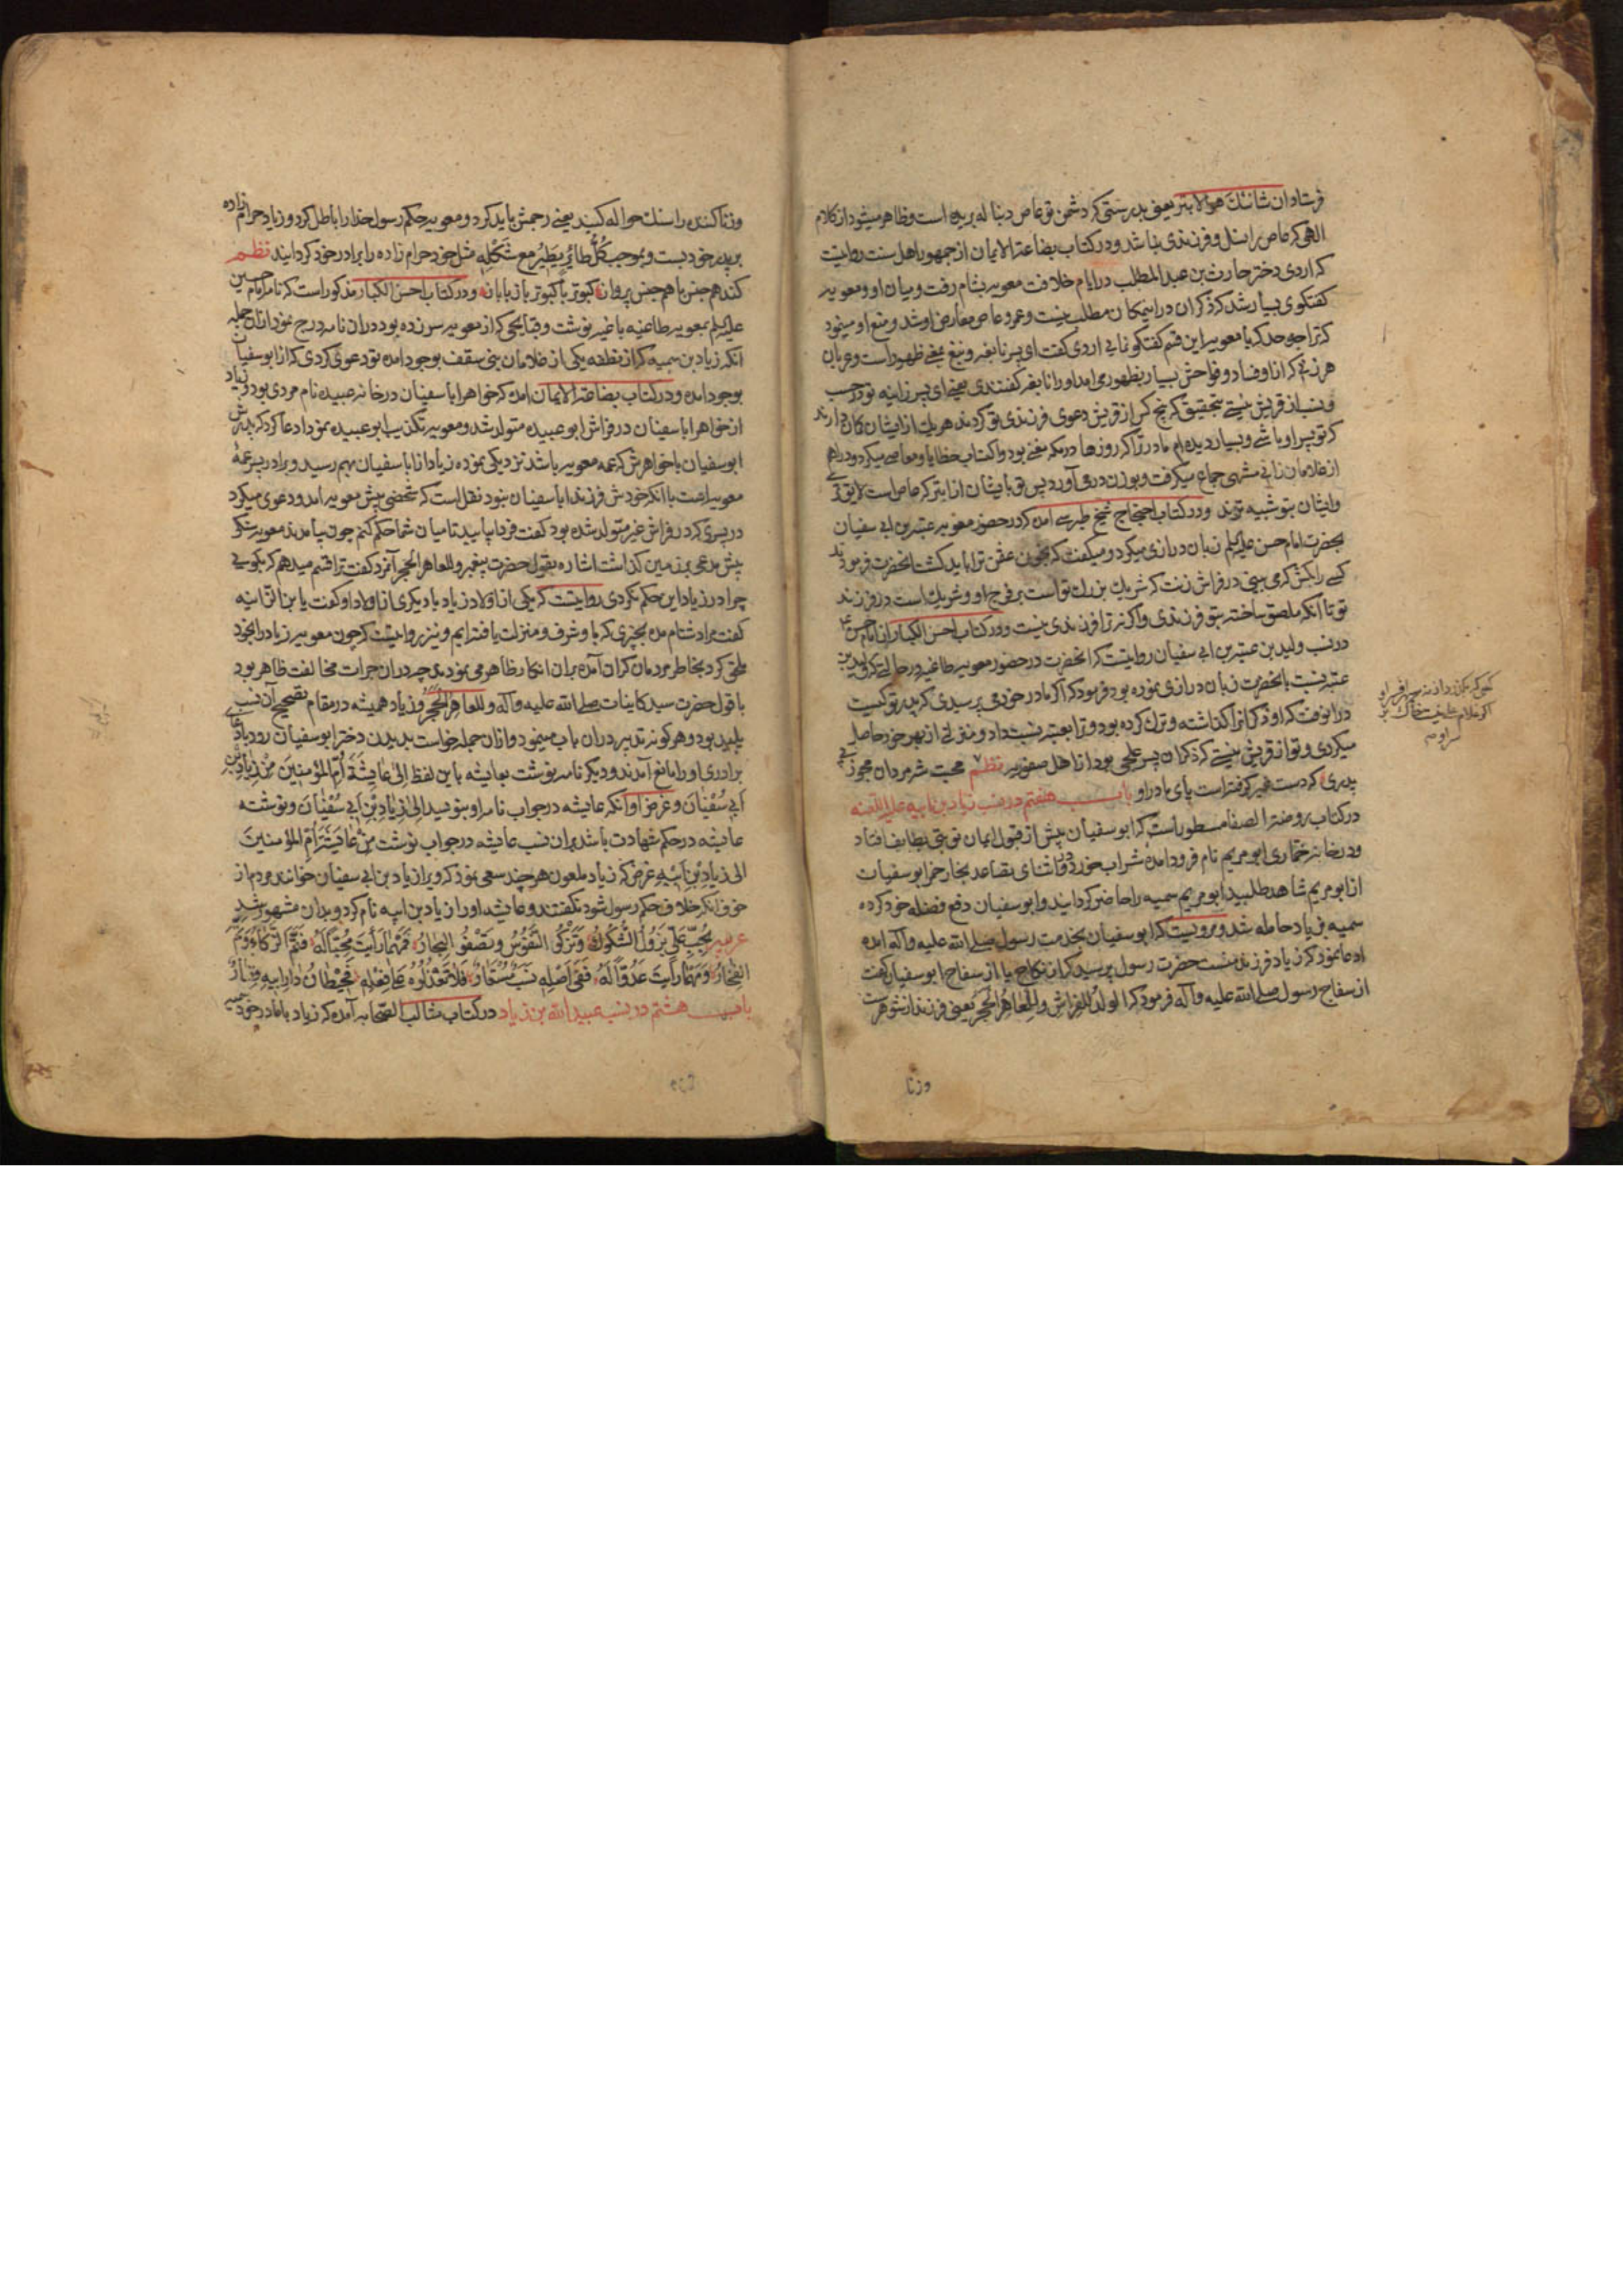 فرستاد ان شانئك هو الابتر یعنی بدرستی که دشمن تو عاص دنباله بریده است و ظاهر میشود از کلام
الهی که عاص را نسل و فرزندی نباشد و در کتاب بضاعة الایمان از جمهور اهل سنت روایتست
که اروی دختر حارث بن عبد المطلب در ایام خلافت معویه بشام رفت و میان او و معویه
گفتگوی بسیار شد که ذکر ان در اینمکان مطلب نیست و عمرو عاص معارض او شد و منع او مینمود
که ترا چه حد که با معویه این قسم گفتگو نمایی اروی گفت ای پسر نابغه و نبغ بمعنی ظهور است و عربان
هر زنی که از او فساد و فواحش بسیار بظهور می امد او را نابغه گفتندی یعنی ای پسر زانیه تو در حسب
و نسب از قریش نیستی بتحقیق که پنج کس از قریش دعوی فرزندی تو کردند هر یك از ایشان گمان دارند
که تو پسر او باشی و بسیار دیده ام مادر ترا که روزها در مکه بود و اکتساب خطایا و معاصی میکرد و دراهم
از غلامان زانی جماع میگرفت و پس تو بایشان از ابتر که عاص است لایق تری
و ایشان بتو شبیه ترند و در کتاب احتجاج شیخ طبرسی امده که در حضور معویه عتبه بن ابی سفیان
بحضرت امام حسن علیه السلم زبان درازی میکرد و میگفت که بخون عثمن ترا باید کشت انحضرت فرمود
کسی را بکش که می بینی در فراش زنت که شریك بزرك تو است بر فرج او و شریك است در فرزند
تو تا انکه ملصق ساخته بتو فرزندی و اگر نه ترا فرزندی نیست و در کتاب احسن الکبار از امام حسن ع
در نسب ولید بن عتبه بن ابی سفیان روایتست که انحضرت در حضور معویه طاغیه در حالتی که ولید بن
عتبه نسبت بانحضرت زبان درازی نموده بود فرمود که اگر مادر خود می پرسیدی که پدر تو کیست
در انوقت که او ذکوانرا گذاشته و ترك کرده بود و ترا بعتبه نسبت داد و منزلتی از بهر خود حاصل
میکردی و تو از قریش نیستی که ذکوان پسر علجی بود از اهل صفوریه نظم محبت شه مردان مجوز بی
پدری که دست غیر گرفتست پای مادر او باب هفتم در نسب زیاد بن ابیه علیه اللعنه
در کتاب روضة الصفا مسطور است که ابو سفیان پیش از قبول ایمان نوبتی بطایف افتاد
و در خانه خماری ابو مریم نام فرود امده شراب خورد و در اثنای تصاعد بخار خمر ابو سفیان
از ابو مریم شاهد طلبید ابو مریم سمیه را حاضر گردانید و ابو سفیان دفع فضله خود کرده
سمیه بزیاد حامله شد و مرویست که ابو سفیان بخدمت رسول صلی الله علیه و آله امده
ادعا نمود که زیاد فرزند منست حضرت رسول پرسید که از نکاح یا از سفاح ابو سفیان گفت
از سفاح رسول صلی الله علیه و آله فرمود که الولد للفراش و للعاهر الحجر یعنی فرزند از شوهر است
وزنا
وزنا کننده را سنك حواله کنید یعنی رجمش باید کرد و معویه حکم رسول خدا را باطل کرد و زیاد حرامزاده
بر پدر خود بست و بموجب کل طائر یطیر مع شکله مثل خود حرام زاده را برادر خود گردانید نظم
کند هم جنس با هم جنس پرواز کبوتر با کبوتر باز با باز و در کتاب احسن الکبار مذکور است که نامه امام حسین
علیه السلم بمعویه طاغیه باغیه نوشت و قبایحی که از معویه سر زده بود در ان نامه درج نمود ازان جمله
انکه زیاد بن سمیه که از نطفه یکی از غلامان بنی سقف بوجود امده تو دعوی کردی که از ابو سفیان
بوجود امده و در کتاب بضاعة الایمان امده که خواهر ابا سفیان در خانه عبیده نام مردی بود و زیاد
از خواهر ابا سفیان در فراش ابو عبیده متولد شد و معویه تکذیب ابو عبیده نمود ادعا کرد که پدرش
ابو سفیان با خواهرش که عمه معویه باشد نزدیکی نموده زیاد از ابا سفیان بهم رسید و برادر پسر عمهٔ
معویه است با انکه خودش فرزند ابا سفیان نبود نقل است که شخصی پیش معویه امد و دعوی میکرد
در پسری که در فراش غیر متولد شده بود گفت فردا بیایید تا میان شما حکم کنم چون بیامدند معویه سنگی
پیش مدعی بر زمین گذاشت اشاره بقول حضرت پیغمبر و للعاهر الحجر آنمرد گفت ترا قسم میدهم که بگویی
چرا در زیاد این حکم نکردی روایتست که یکی از اولاد زیاد با دیگری از اولاد او گفت یا بن الزانیه
گفت مرا دشنام مده بچیزی که با و شرف و منزلت یافته ایم و نیز روایتست که چون معویه زیاد را بخود
ملحق کرد بخاطر مردمان گران آمده بران انکار ظاهر می نمودند چه دران جرات مخالفت ظاهر بود
با قول حضرت سید کاینات صلی الله علیه و آله و للعاهر الحجر و زیاد همیشه در مقام تصحیح آن نسب
پلید بود و هر گونه تدبیر دران باب مینمود و ازان جمله خواست بدیدن دختر ابو سفیان رود
برادری او را مانع آمدند و دیگر نامه نوشت بعایشه باین لفظ الی عایشة ام المؤمنین من زیاد بن
ابی سفیان و غرض او آنکه عایشه در جواب نامه او بنویسد الی زیاد بن ابی سفیان و نوشته
عایشه در حکم شهادت باشد بران نسب عایشه در جواب نوشت من عایشة ام المؤمنین
الی زیاد بن ابیه غرض که زیاد ملعون هر چند سعی نمود که ویرا زیاد بن ابی سفیان خوانند مردم از
خوف انکه خلاف حکم رسول شود نگفتند و عایشه او را زیاد بن ابیه نام کرد و بدان مشهور شد
عربیه بحب علی تزول الشکوك و تزکوا النفوس و تصفوا النجار فمهما رأیت محبا له فثم الزکاء و ثم
الفخار و مهما رأیت عدوا له ففی اصله نسب مستعار فلا تعذلوه علی فعله فحیطان دار ابیه قصار
باب هشتم در نسب عبید الله بن زیاد در کتاب مثالب الصحابه آمده که زیاد با مادر خود سمیه